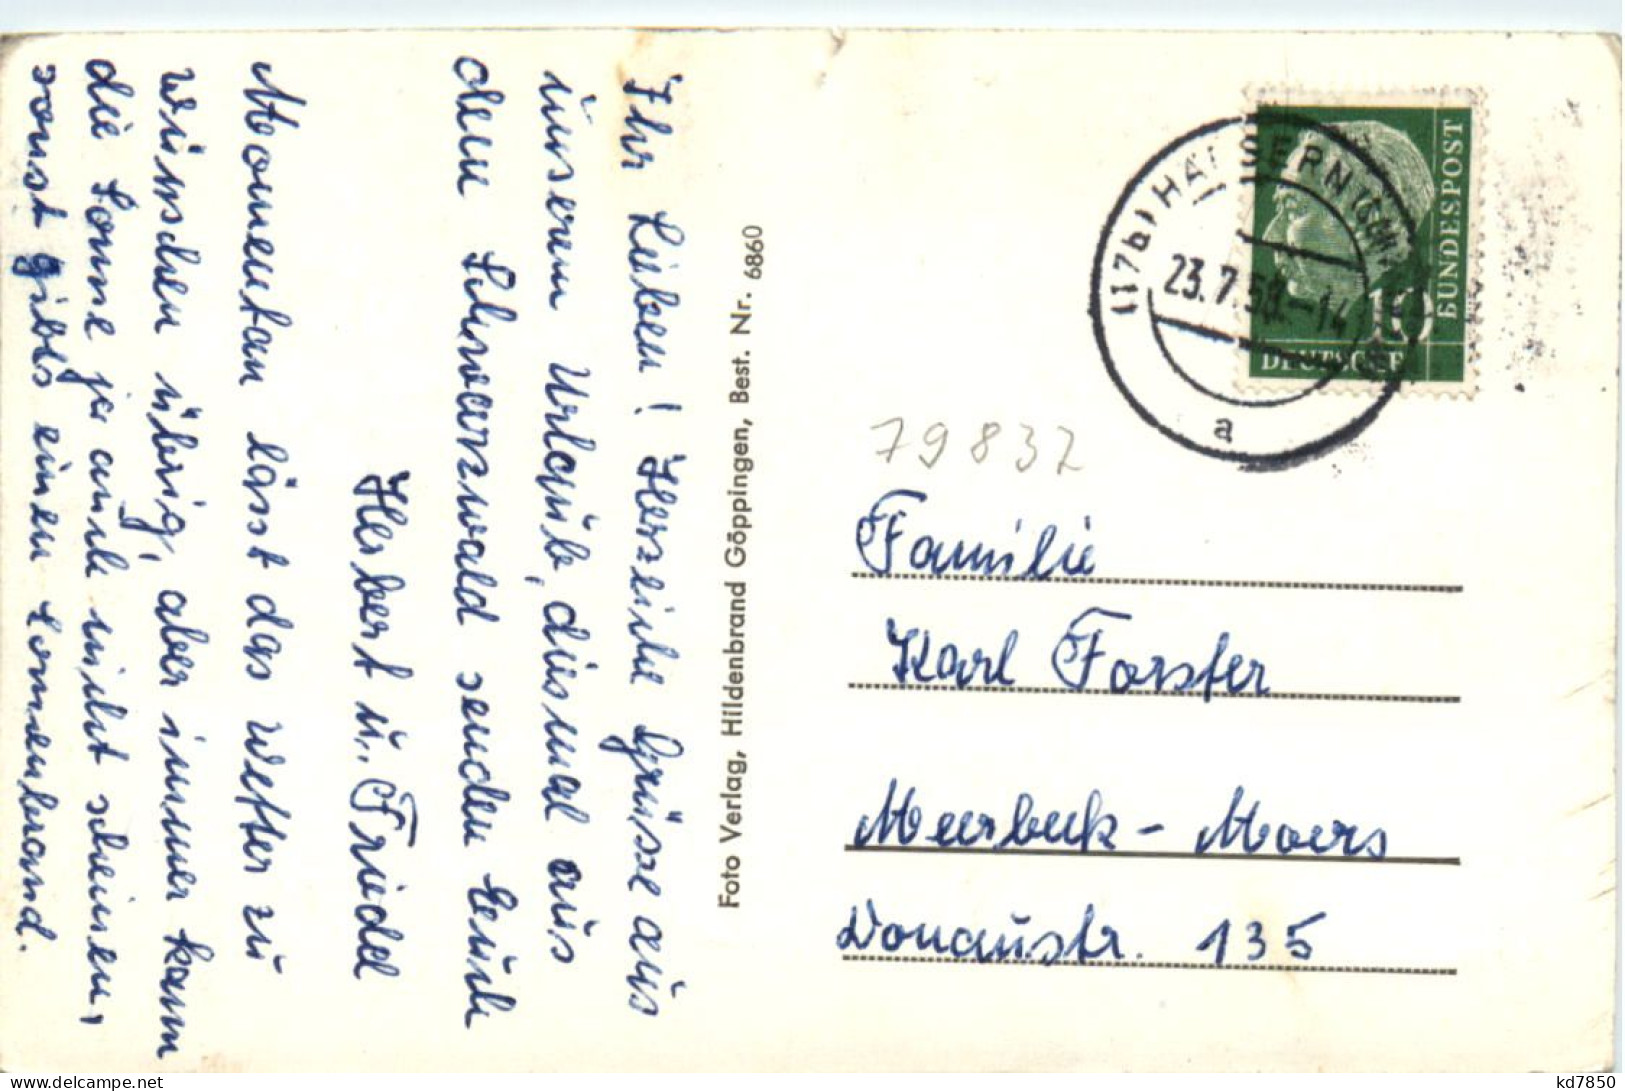 Ihr Lieben! Herzliche Grüsse aus
unserem Urlaub, diesmal aus
dem Schwarzwald senden Euch
Herbert u. Friedel
Momentan lässt das Wetter zu
wünschen übrig, aber immer kann
die Sonne ja auch nicht scheinen,
sonst gibts einen Sonnenbrand.
Foto Verlag, Hildenbrand Göppingen, Best. Nr. 6860
(17b) HÄUSERN
23.7.58.-14
a
10
DEUTSCHE
BUNDESPOST
79837
Familie
Karl Forster
Meerbeck - Moers
Donaustr. 135
kd7850